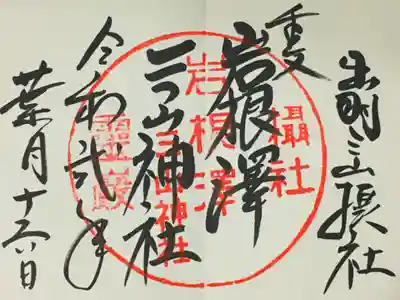 出羽三山摂社
重文
岩根澤
三山神社
令和弐年
葉月十六日
攝社
岩根澤
三山神社
靈嚴